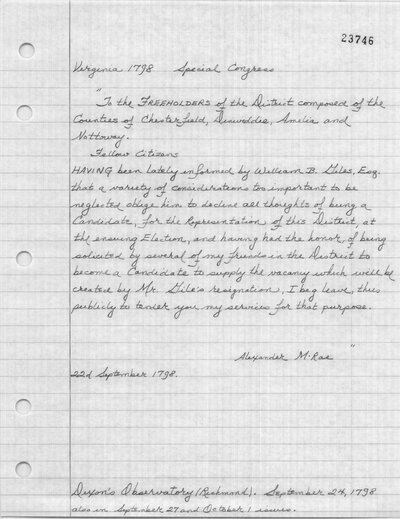 23746
Virginia 1798 Special Congress
"To the FREEHOLDERS of the District composed of the
Counties of Chesterfield, Dinwiddie, Amelia and
Nottoway.
Fellow Citizens
HAVING been lately informed by William B. Giles, Esq.
that a variety of considerations too important to be
neglected oblige him to decline all thoughts of being a
Candidate, for the Representation of this District, at
the ensuing Election, and having had the honor, of being
solicited by several of my friends in the District to
become a Candidate to supply the vacancy which will be
created by Mr. Gile's resignation, I beg leave, thus
publicly to tender you my services for that purpose.
Alexander M·Rae "
22d September 1798.
Dixon's Observatory (Richmond). September 24, 1798
also in September 27 and October 1 issues.